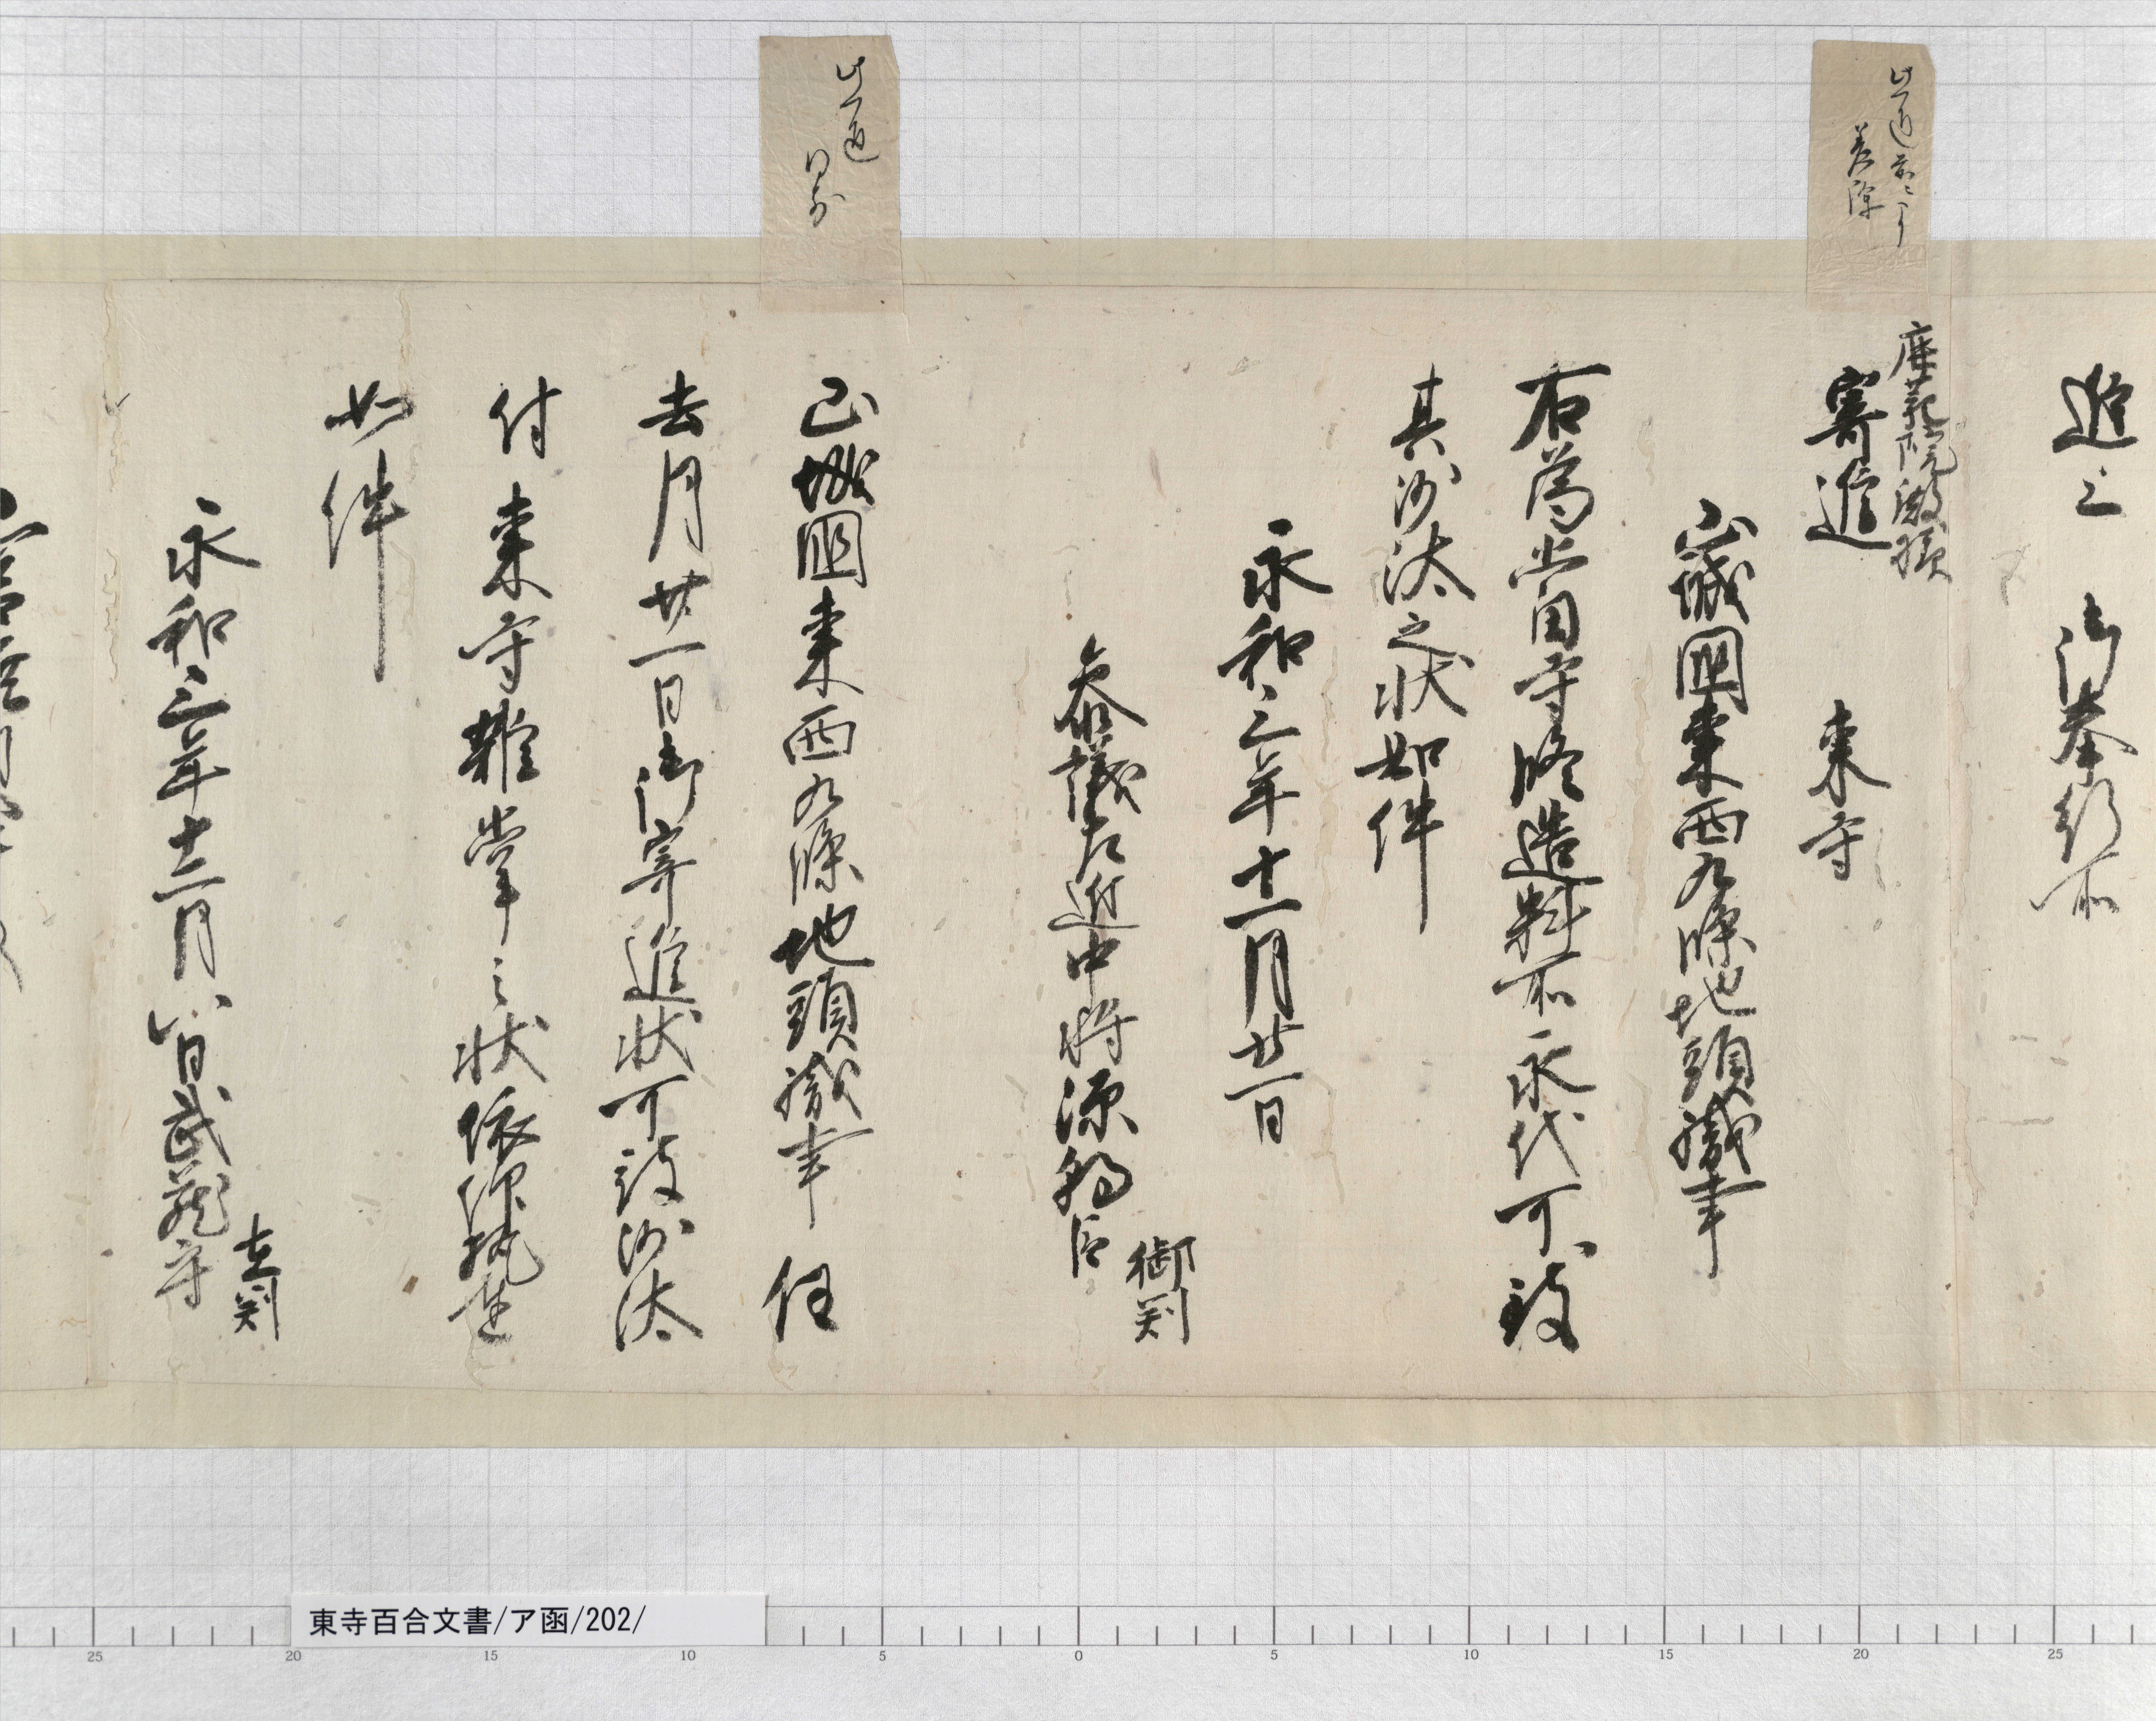 進上　御奉行所
此一通前ニ有
着御
鹿苑院殿様
寄進　東寺
山城国東西九条地頭職事
右為当国寺修造料所永代可致
其沙汰之状如件
永和三年十二月廿一日
参議左近中将源朝臣　御判
此一通
同前
山城国東西九条地頭職事任
去月廿一日御寄進状可致沙汰
付東寺雑掌之状依仰執達
如件
永和三年十二月八日武蔵守　在判
東寺百合文書/ア函/202/
25 20 15 10 5 0 5 10 15 20 25